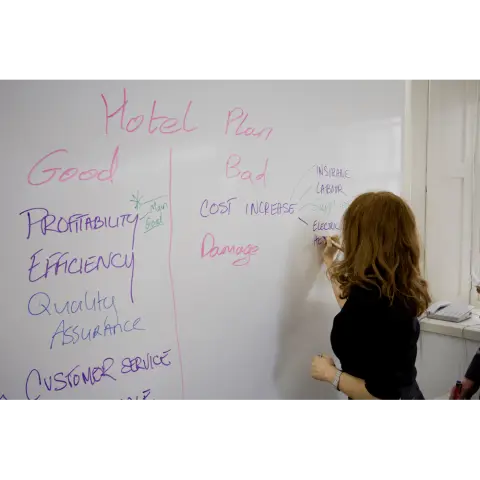 Hotel Plan
Good
Bad
PROFITABILITY
Main
Goal
EFFICIENCY
Quality
ASSURANCE
CUSTOMER SERVICE
COST INCREASE
LABOUR
Damage